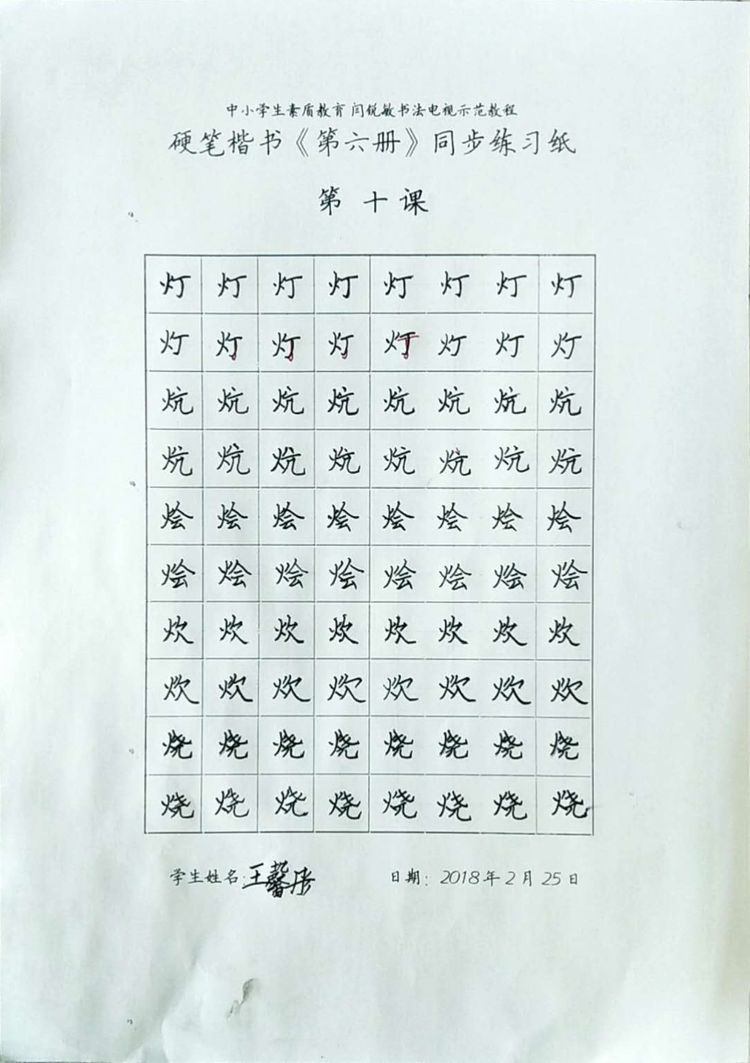 中小学生素质教育 闫锐敏书法电视示范教程
硬笔楷书《第六册》同步练习纸
第十课
灯灯灯灯灯灯灯灯
灯灯灯灯灯灯灯灯
炕炕炕炕炕炕炕炕
炕炕炕炕炕炕炕炕
烩烩烩烩烩烩烩烩
烩烩烩烩烩烩烩烩
炊炊炊炊炊炊炊炊
炊炊炊炊炊炊炊炊
烧烧烧烧烧烧烧烧
烧烧烧烧烧烧烧烧
学生姓名:王馨彤 日期:2018年2月25日